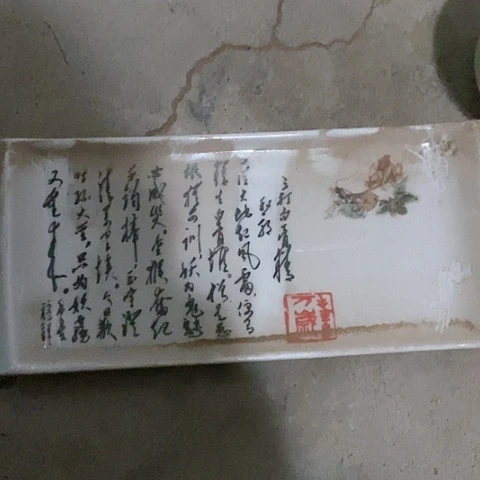 三打白骨精
一从大地起风雷，便有
精生白骨堆。僧是愚
氓犹可训，妖为鬼蜮
必成灾。金猴奋起
千钧棒，玉宇澄
清万里埃。今日欢
呼孙大圣，只缘妖雾
又重来。
万岁